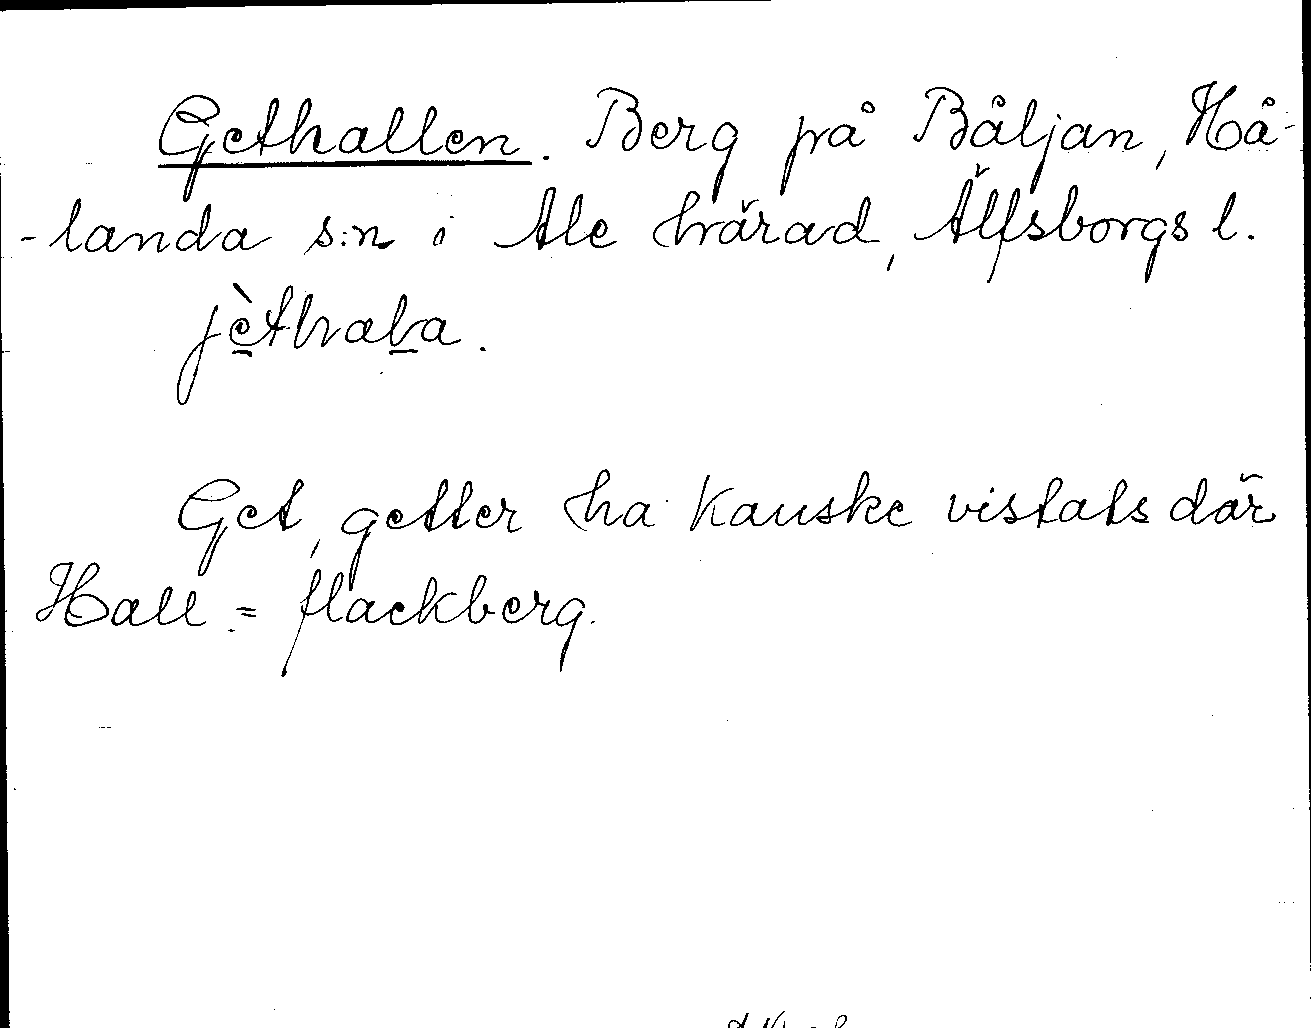 Gethallen. Berg på Båljan, Hå-
-landa s:n i Ale härad, Älfsborgs l.
jèthala.
Get, getter ha kanske vistats där
Hall = flackberg.